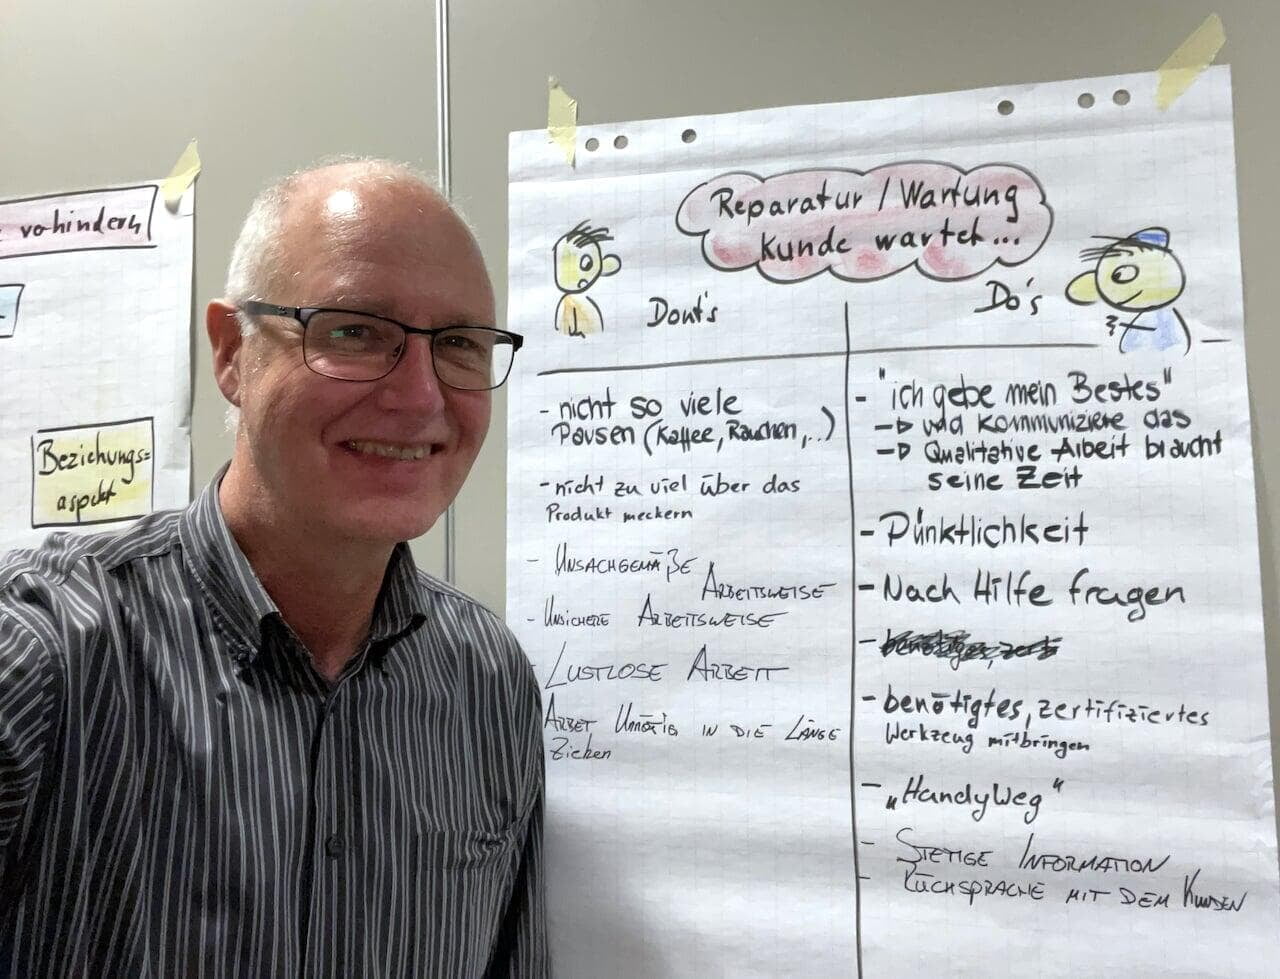 vohindern
Beziehungs=
aspekt
Reparatur / Wartung
Kunde wartet...
Dont's
Do's
- nicht so viele
Pausen (Kaffee, Rauchen,..)
- nicht zu viel über das
Produkt meckern
- UNSACHGEMÄẞE
ARBEITSWEISE
- UNSICHERE ARBEITSWEISE
- LUSTLOSE ARBEIT
ARBEIT UNNÖTIG IN DIE LÄNGE
Ziehen
- "ich gebe mein Bestes"
-▷ und kommuniziere das
-▷ Qualitative Arbeit braucht
seine Zeit
- Pünktlichkeit
- Nach Hilfe fragen
- benötigtes, zertifiziertes
Werkzeug mitbringen
- „HandyWeg"
- STETIGE INFORMATION
- RÜCKSPRACHE MIT DEM KUNDEN